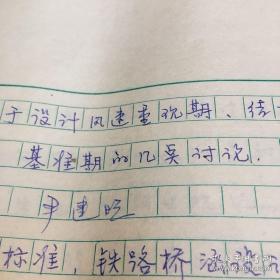 于设计风速重现期、结
基准期的几点讨论.
标准,铁路桥涵